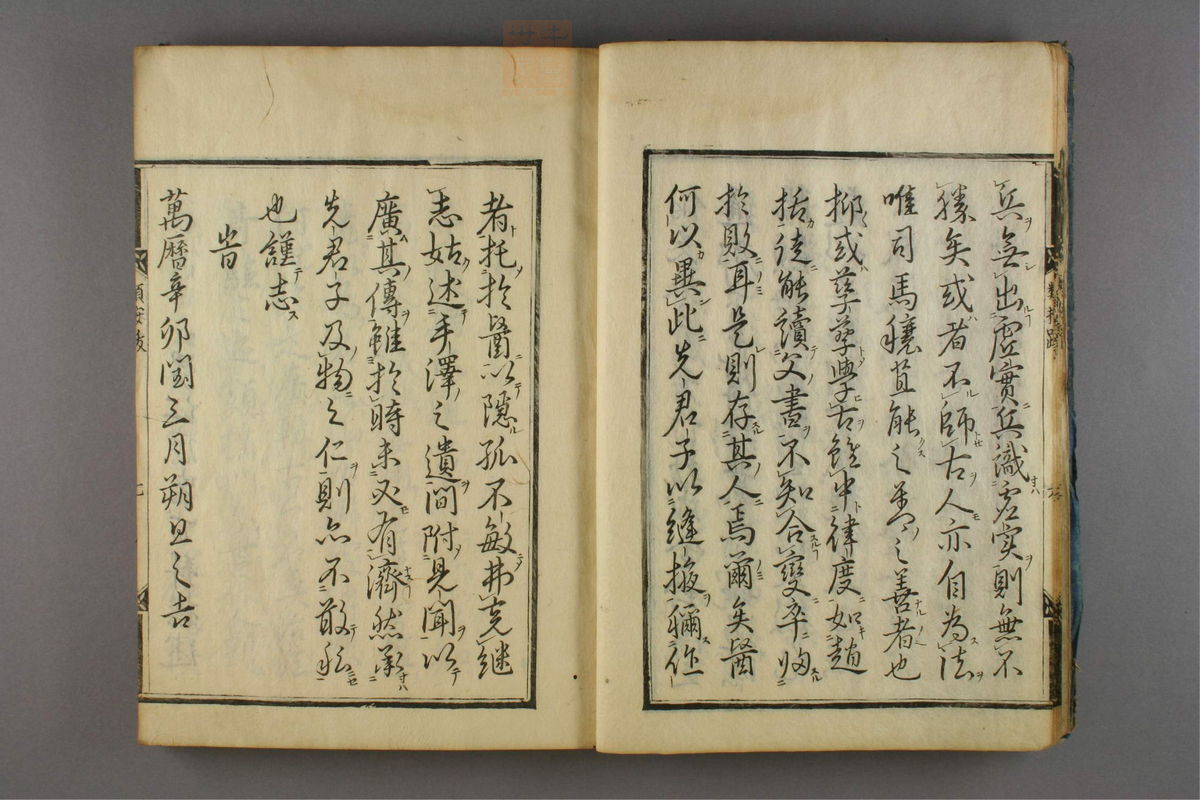 兵無出虚實兵識虚实則無不
勝矣或者不師古人亦自為法
唯司馬穰苴能之算之善者也
抑或孳孳學古雖中律度如趙
括徒能讀父書不知合變卒歸
於敗耳是則存其人焉爾矣醫
何以異此先君子以縫掖稱儒
者托於醫以隱孤不敏弗克继
志姑述手澤之遺間附見聞以
廣其傳雖於時未必有濟然承
先君子及物之仁則亦不敢私
也謹志
峕
萬曆辛卯閏三月朔旦之吉